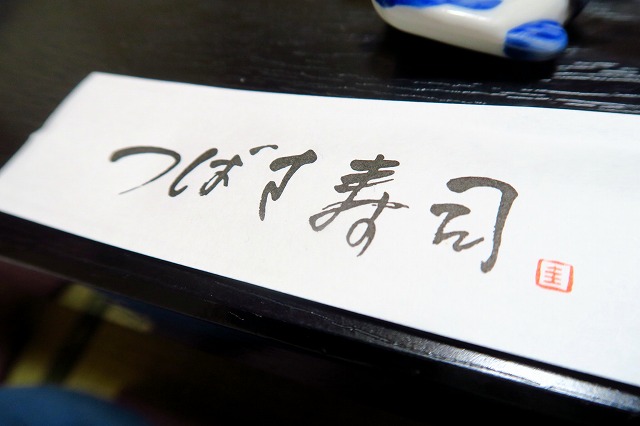 つばさ寿司
圭